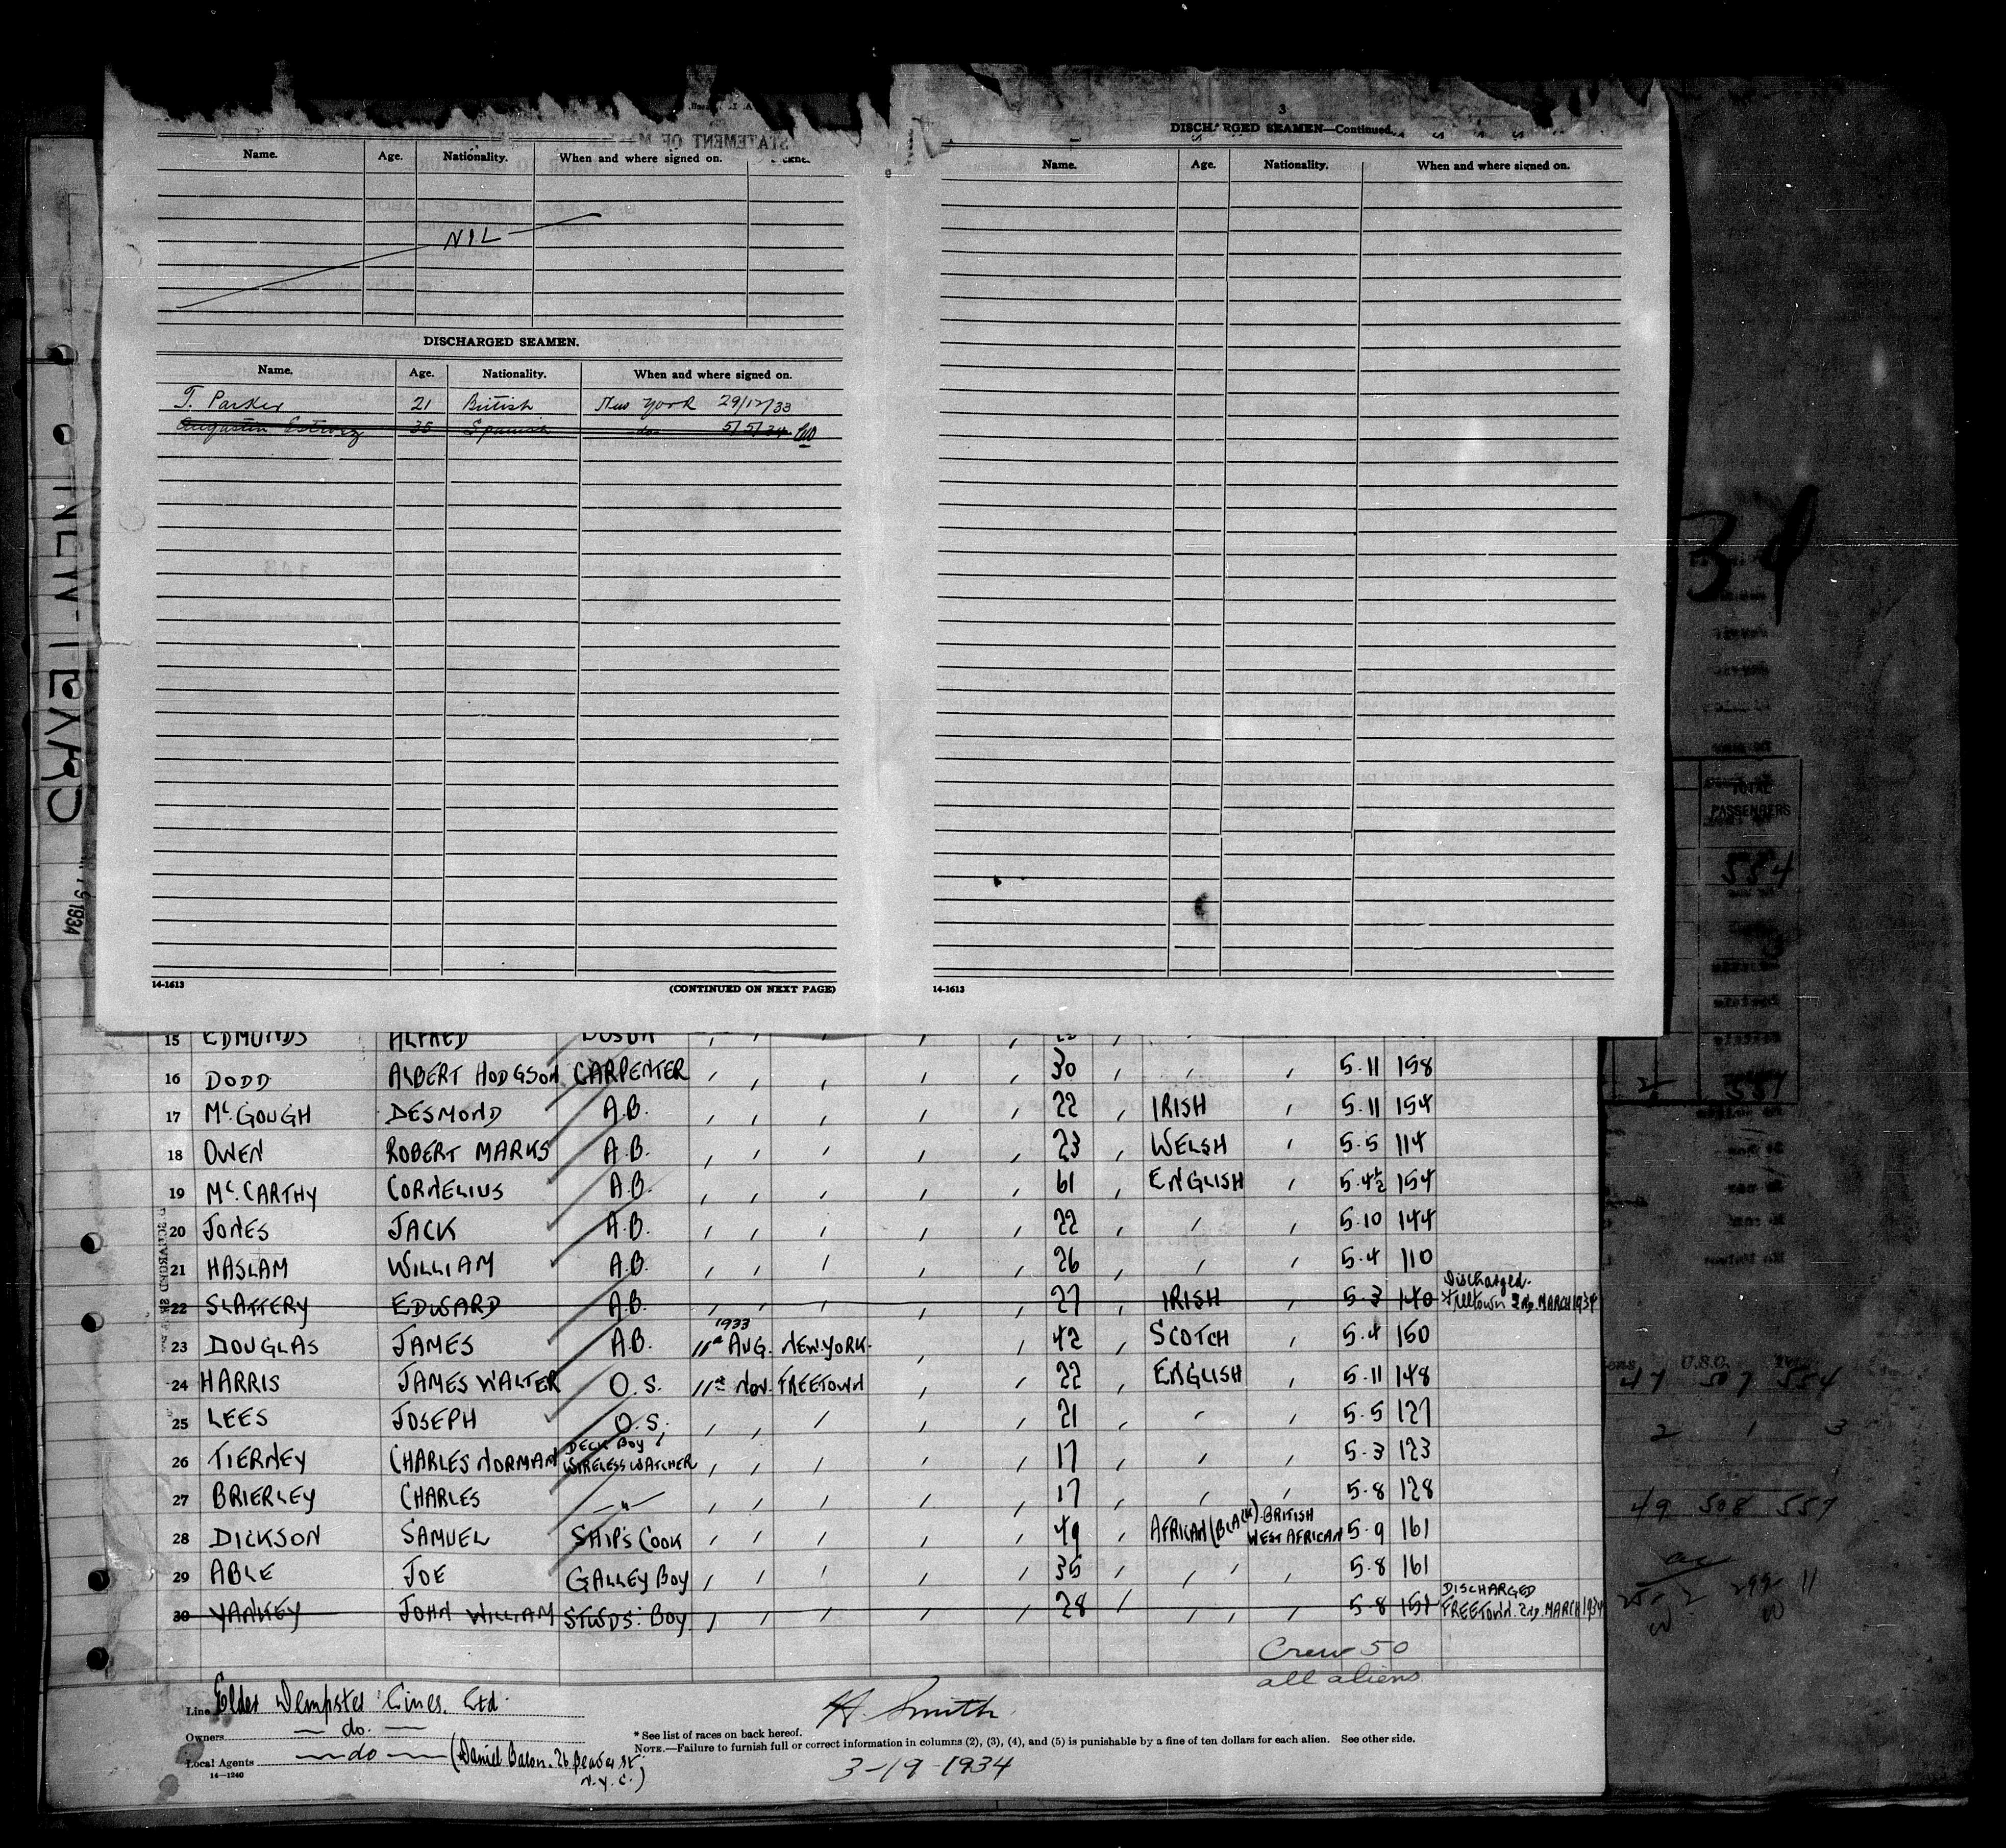 Name. Age. Nationality. When and where signed on.
NIL
DISCHARGED SEAMEN.
Name. Age. Nationality. When and where signed on.
T. Parker 21 British New York 29/12/33
Augustin 35 Spanish do 5/5/34
14-1613 (CONTINUED ON NEXT PAGE)
3
DISCHARGED SEAMEN—Continued.
Name. Age. Nationality. When and where signed on.
14-1613
34
TOTAL
PASSENGERS
554
3
557
15 EDMUNDS ALFRED BOSUN
16 DODD ALBERT HODGSON CARPENTER 30 5.11 158
17 McGOUGH DESMOND A.B. 22 IRISH 5.11 154
18 OWEN ROBERT MARKS A.B. 23 WELSH 5.5 114
19 McCARTHY CORNELIUS A.B. 61 ENGLISH 5.4½ 154
20 JONES JACK A.B. 22 5.10 144
21 HASLAM WILLIAM A.B. 26 5.4 110
22 SLATTERY EDWARD A.B. 27 IRISH 5.3 140 Discharged. Freetown 2nd MARCH 1934
23 DOUGLAS JAMES A.B. 1933 11th AUG. NEW YORK. 42 SCOTCH 5.4 150
24 HARRIS JAMES WALTER O.S. 11th Nov. FREETOWN 22 ENGLISH 5.11 148
25 LEES JOSEPH O.S. 21 5.5 127
26 TIERNEY CHARLES NORMAN DECK BOY & WIRELESS WATCHER 17 5.3 123
27 BRIERLEY CHARLES —"— 17 5.8 128
28 DICKSON SAMUEL SHIP'S COOK 49 AFRICAN (BLACK) BRITISH WEST AFRICAN 5.9 161
29 ABLE JOE GALLEY BOY 35 5.8 161
30 YANKEY JOHN WILLIAM STWDS. BOY 28 5.8 151 DISCHARGED FREETOWN. 2nd MARCH 1934
Crew 50
all aliens
Line Elder Dempster Lines. Ltd.
Owners — do. —
Local Agents — do — (Daniel Bacon. 26 Beaver St. N.Y.C.)
14—1240
H. Smith
* See list of races on back hereof.
NOTE.—Failure to furnish full or correct information in columns (2), (3), (4), and (5) is punishable by a fine of ten dollars for each alien. See other side.
3-19-1934
U.S.C.
47 507 554
2 1 3
49 508 557